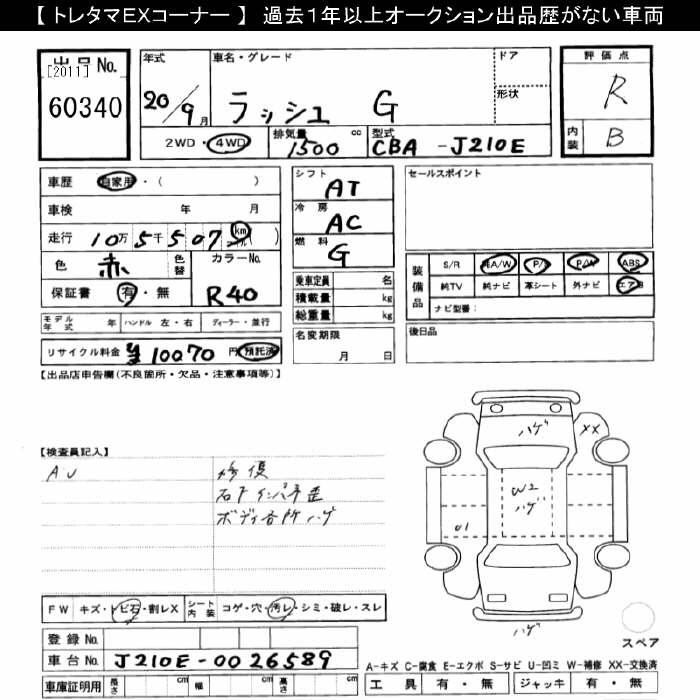 【 トレタマEXコーナー 】 過去1年以上オークション出品歴がない車両
出品No.
[2011]
60340
年式
20/9月
車名・グレード
ラッシュ G
ドア
形状
2WD・4WD
排気量 cc
1500
型式
CBA -J210E
評価点
R
内装
B
車歴 自家用・( )
車検 年 月
走行 10万5千507km( )
色 赤
色替
カラーNo.
R40
保証書 有・無
モデル年式 年 ハンドル 左・右 ディーラー・並行
リサイクル料金 ¥10070 円 預託済
シフト
AT
冷房
AC
燃料
G
乗車定員 名
積載量 kg
総重量 kg
名変期限
月 日
セールスポイント
装備品
S/R 純A/W P/S P/W ABS
純TV 純ナビ 革シート 外ナビ エアB
ナビ型番:
後日品
【出品店申告欄(不良箇所・欠品・注意事項等)】
【検査員記入】
AU
修復
右F インパネ歪
ボディ各所ハゲ
ハゲ
XX
W2
ハゲ
U1
ハゲ
スペア
FW キズ・トビ石・割レX
シート内装 コゲ・穴・汚レ・シミ・破レ・スレ
登録No.
車台No. J210E-0026589
車庫証明用 長さ cm 幅 cm 高さ cm
A-キズ C-腐食 E-エクボ S-サビ U-凹ミ W-補修 XX-交換済
工具 有・無 ジャッキ 有・無